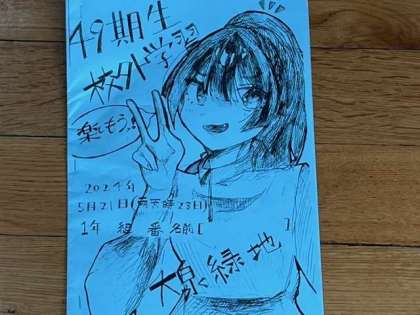 49期生
校外学習
楽しもうっ!
2024年
5月21日(雨天時23日)
1年 組 番 名前[ ]
大泉緑地